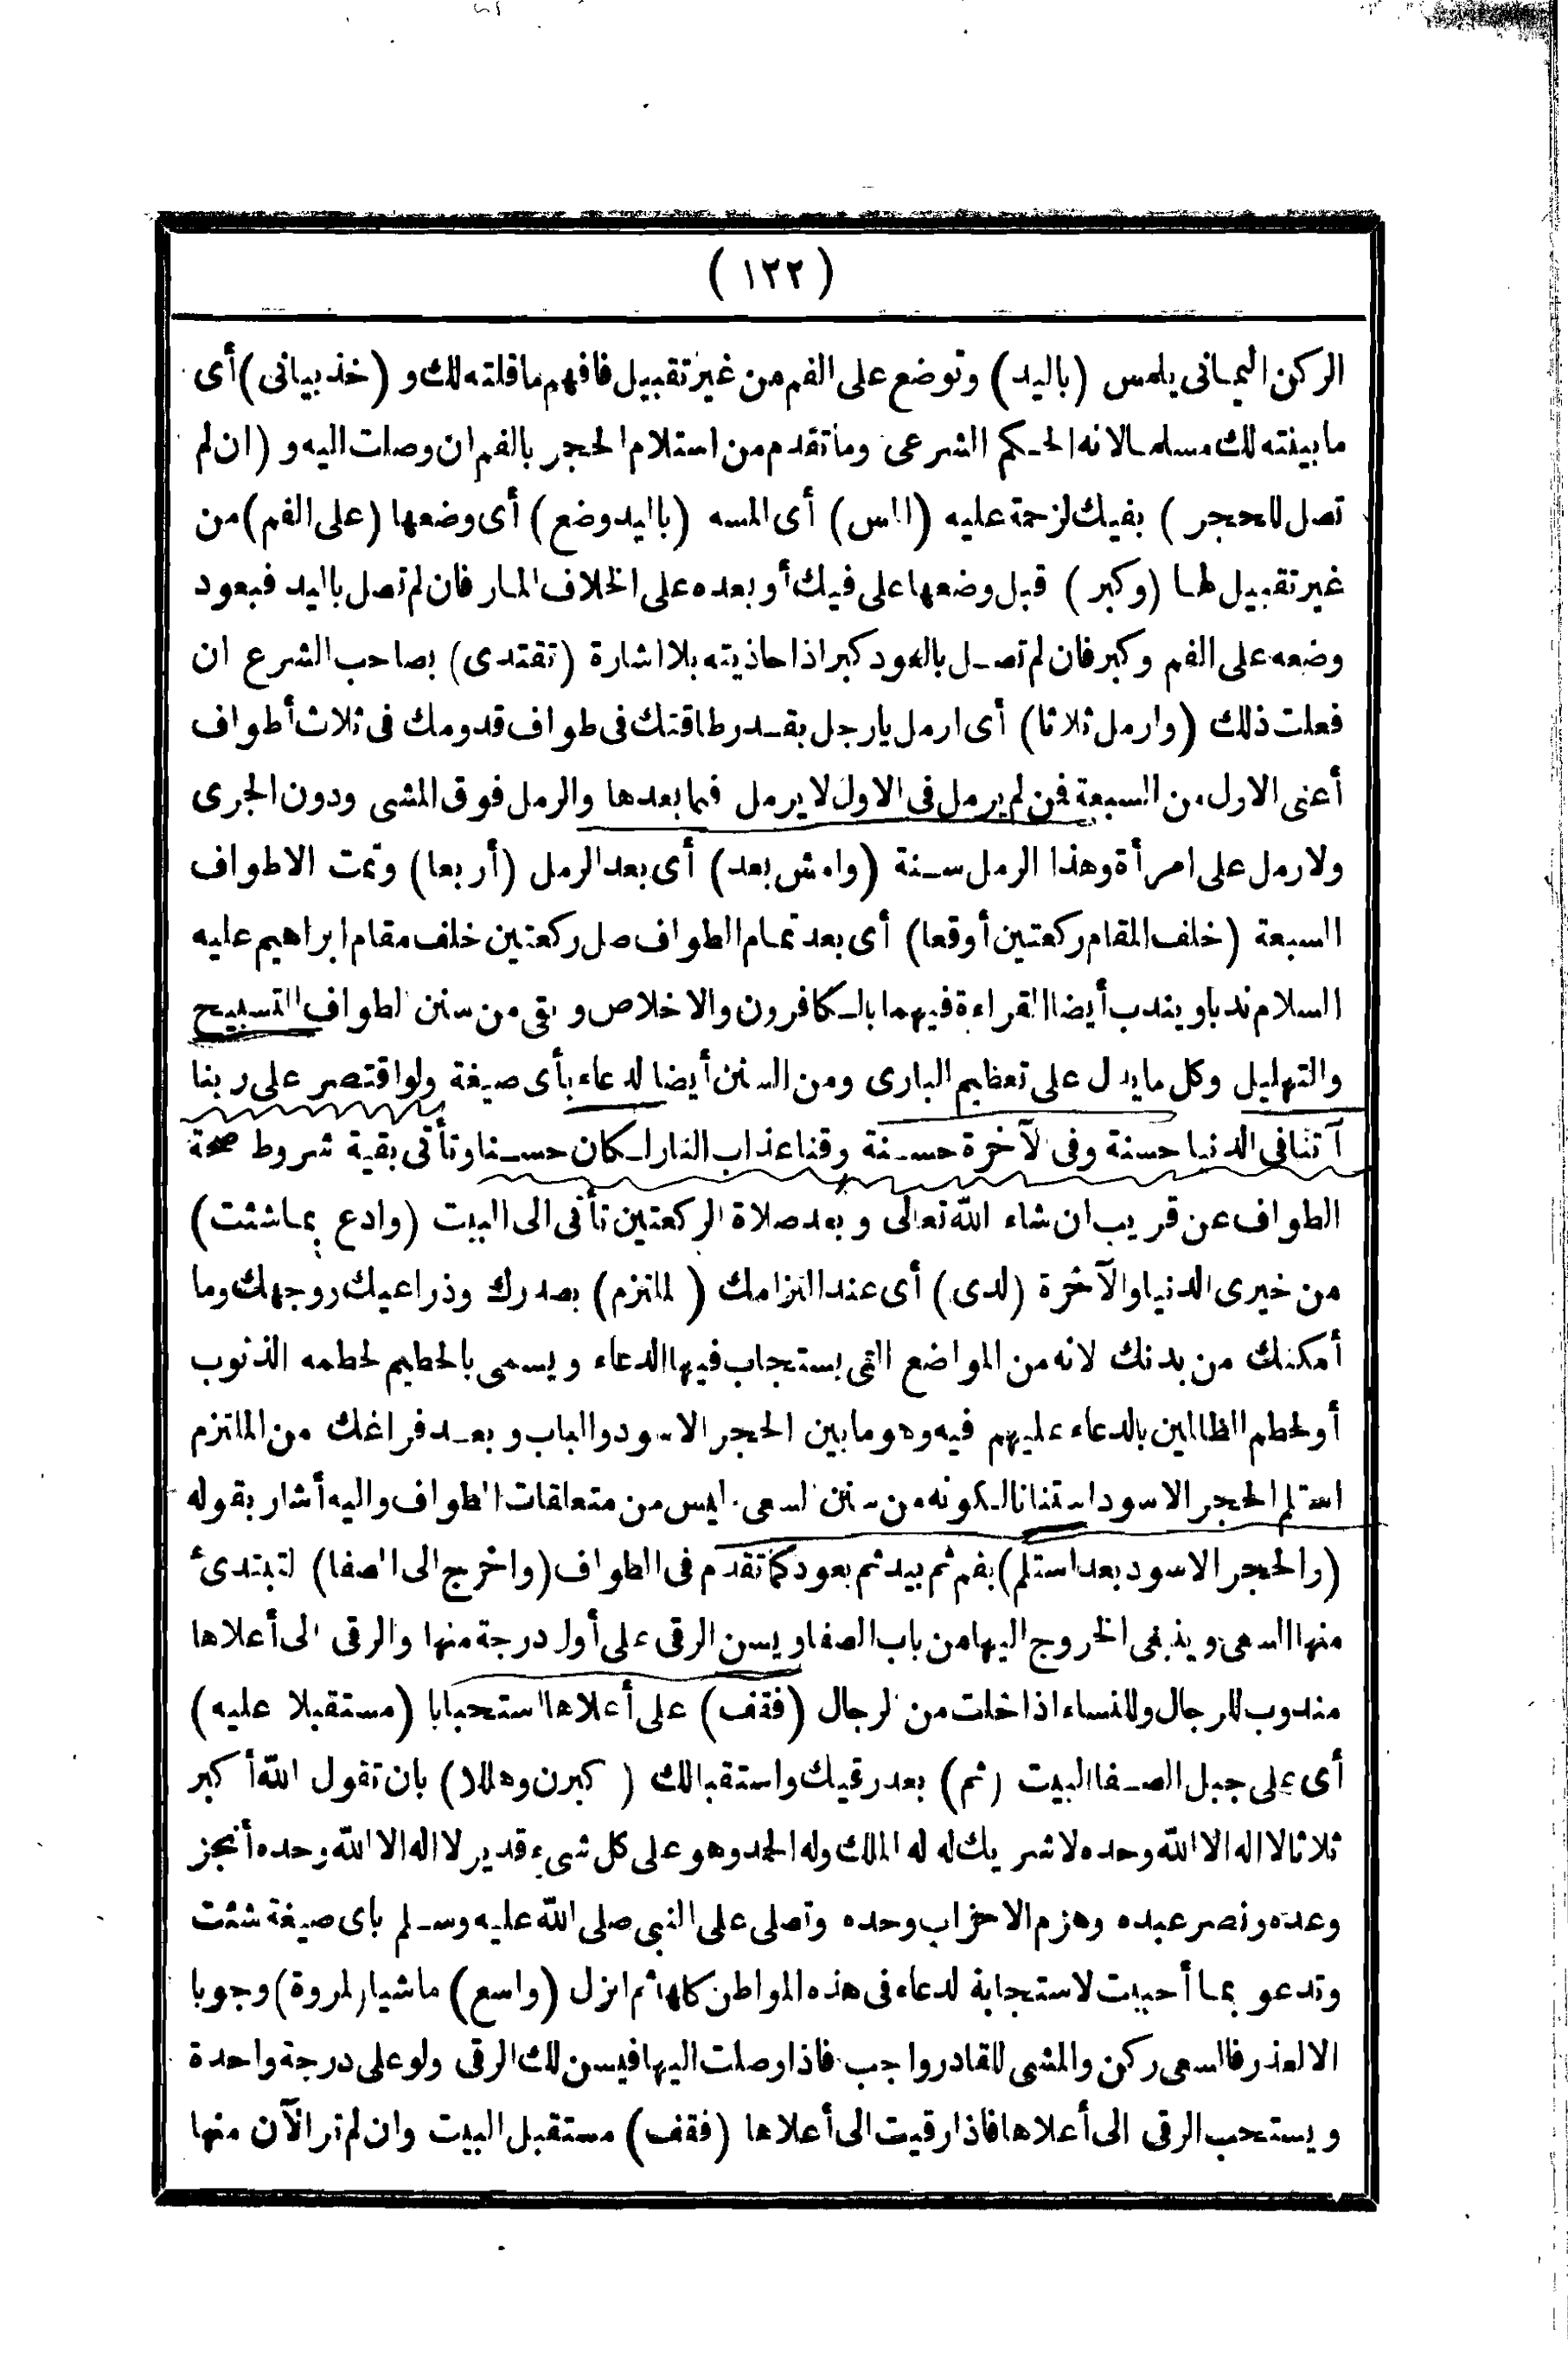 ( ١٢٢ )
الركن اليمانى يلمس (باليد) وتوضع على الفم من غير تقبيل فافهم ما قلته لك و (خذ بيانى) أى
ما بينته لك مسلما لانه الحكم الشرعى وما تقدم من استلام الحجر بالفم ان وصلت اليه و (ان لم
تصل للحجر ) بفيك لزحمة عليه (المس) أى المسه (باليد وضع) أى وضعها (على الفم) من
غير تقبيل لها (وكبر) قبل وضعها على فيك أو بعده على الخلاف المار فان لم تصل باليد فبعود
وضعه على الفم وكبر فان لم تصل بالعود كبر اذا حاذيته بلا اشارة (تقتدى) بصاحب الشرع ان
فعلت ذلك (وارمل ثلاثا) أى ارمل يا رجل بقدر طاقتك فى طواف قدومك فى ثلاث أطواف
أعنى الاول من السبعة فمن لم يرمل فى الاول لا يرمل فيما بعدها والرمل فوق المشى ودون الجرى
ولا رمل على امرأة وهذا الرمل سنة (وامش بعد) أى بعد الرمل (أربعا) وتمت الاطواف
السبعة (خلف المقام ركعتين أوقعا) أى بعد تمام الطواف صل ركعتين خلف مقام ابراهيم عليه
السلام ندبا ويندب أيضا القراءة فيهما بالكافرون والاخلاص وبقى من سنن الطواف التسبيح
والتهليل وكل ما يدل على تعظيم البارى ومن السنن أيضا الدعاء بأى صيغة ولو اقتصر على ربنا
آتنا فى الدنيا حسنة وفى الآخرة حسنة وقنا عذاب النار لكان حسنا وتأتى بقية شروط صحة
الطواف عن قريب ان شاء الله تعالى وبعد صلاة الركعتين تأتى الى البيت (وادع بما شئت)
من خيرى الدنيا والآخرة (لدى) أى عند التزامك ( الملتزم) بصدرك وذراعيك ووجهك وما
أمكنك من بدنك لانه من المواضع التى يستجاب فيها الدعاء ويسمى بالحطيم لحطمه الذنوب
أو لحطم الظالمين بالدعاء عليهم فيه وهو ما بين الحجر الاسود والباب وبعد فراغك من الملتزم
استلم الحجر الاسود استنانا لكونه من سنن السعى ليس من متعلقات الطواف واليه أشار بقوله
(والحجر الاسود بعد استلم) بفم ثم بيد ثم بعود كما تقدم فى الطواف (واخرج الى الصفا) لتبتدئ
منها السعى وينبغى الخروج اليها من باب الصفا ويسن الرقى على أول درجة منها والرقى الى أعلاها
مندوب للرجال وللنساء اذا خلت من الرجال (فقف) على أعلاها استحبابا (مستقبلا عليه)
أى على جبل الصفا البيت (ثم) بعد رقيك واستقبالك ( كبرن وهللا) بان تقول الله أكبر
ثلاثا لا اله الا الله وحده لا شريك له له الملك وله الحمد وهو على كل شىء قدير لا اله الا الله وحده أنجز
وعده ونصر عبده وهزم الاحزاب وحده وتصلى على النبى صلى الله عليه وسلم باى صيغة شئت
وتدعو بما أحببت لاستجابة الدعاء فى هذه المواطن كلها ثم انزل (واسع) ماشيا (لمروة) وجوبا
الا لعذر فالسعى ركن والمشى للقادر واجب فاذا وصلت اليها فيسن لك الرقى ولو على درجة واحدة
ويستحب الرقى الى أعلاها فاذا رقيت الى أعلاها (فقف) مستقبل البيت وان لم تر الآن منها